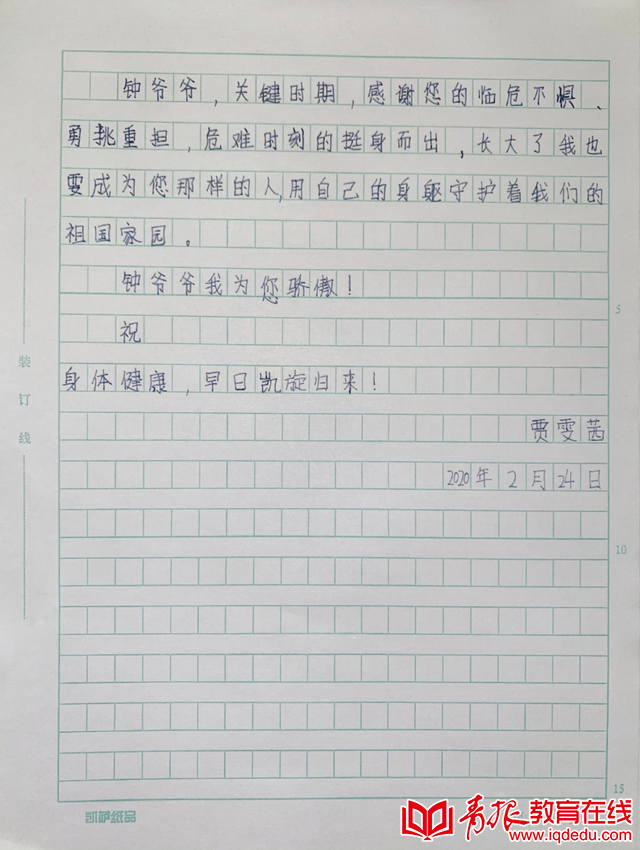 钟爷爷，关键时期，感谢您的临危不惧、
勇挑重担，危难时刻的挺身而出，长大了我也
要成为您那样的人,用自己的身躯守护着我们的
祖国家园。
钟爷爷我为您骄傲！
5
祝
身体健康，早日凯旋归来！
贾雯茜
2020年2月24日
10
15
装订线
凯萨纸品
青报教育在线
www.iqdedu.com